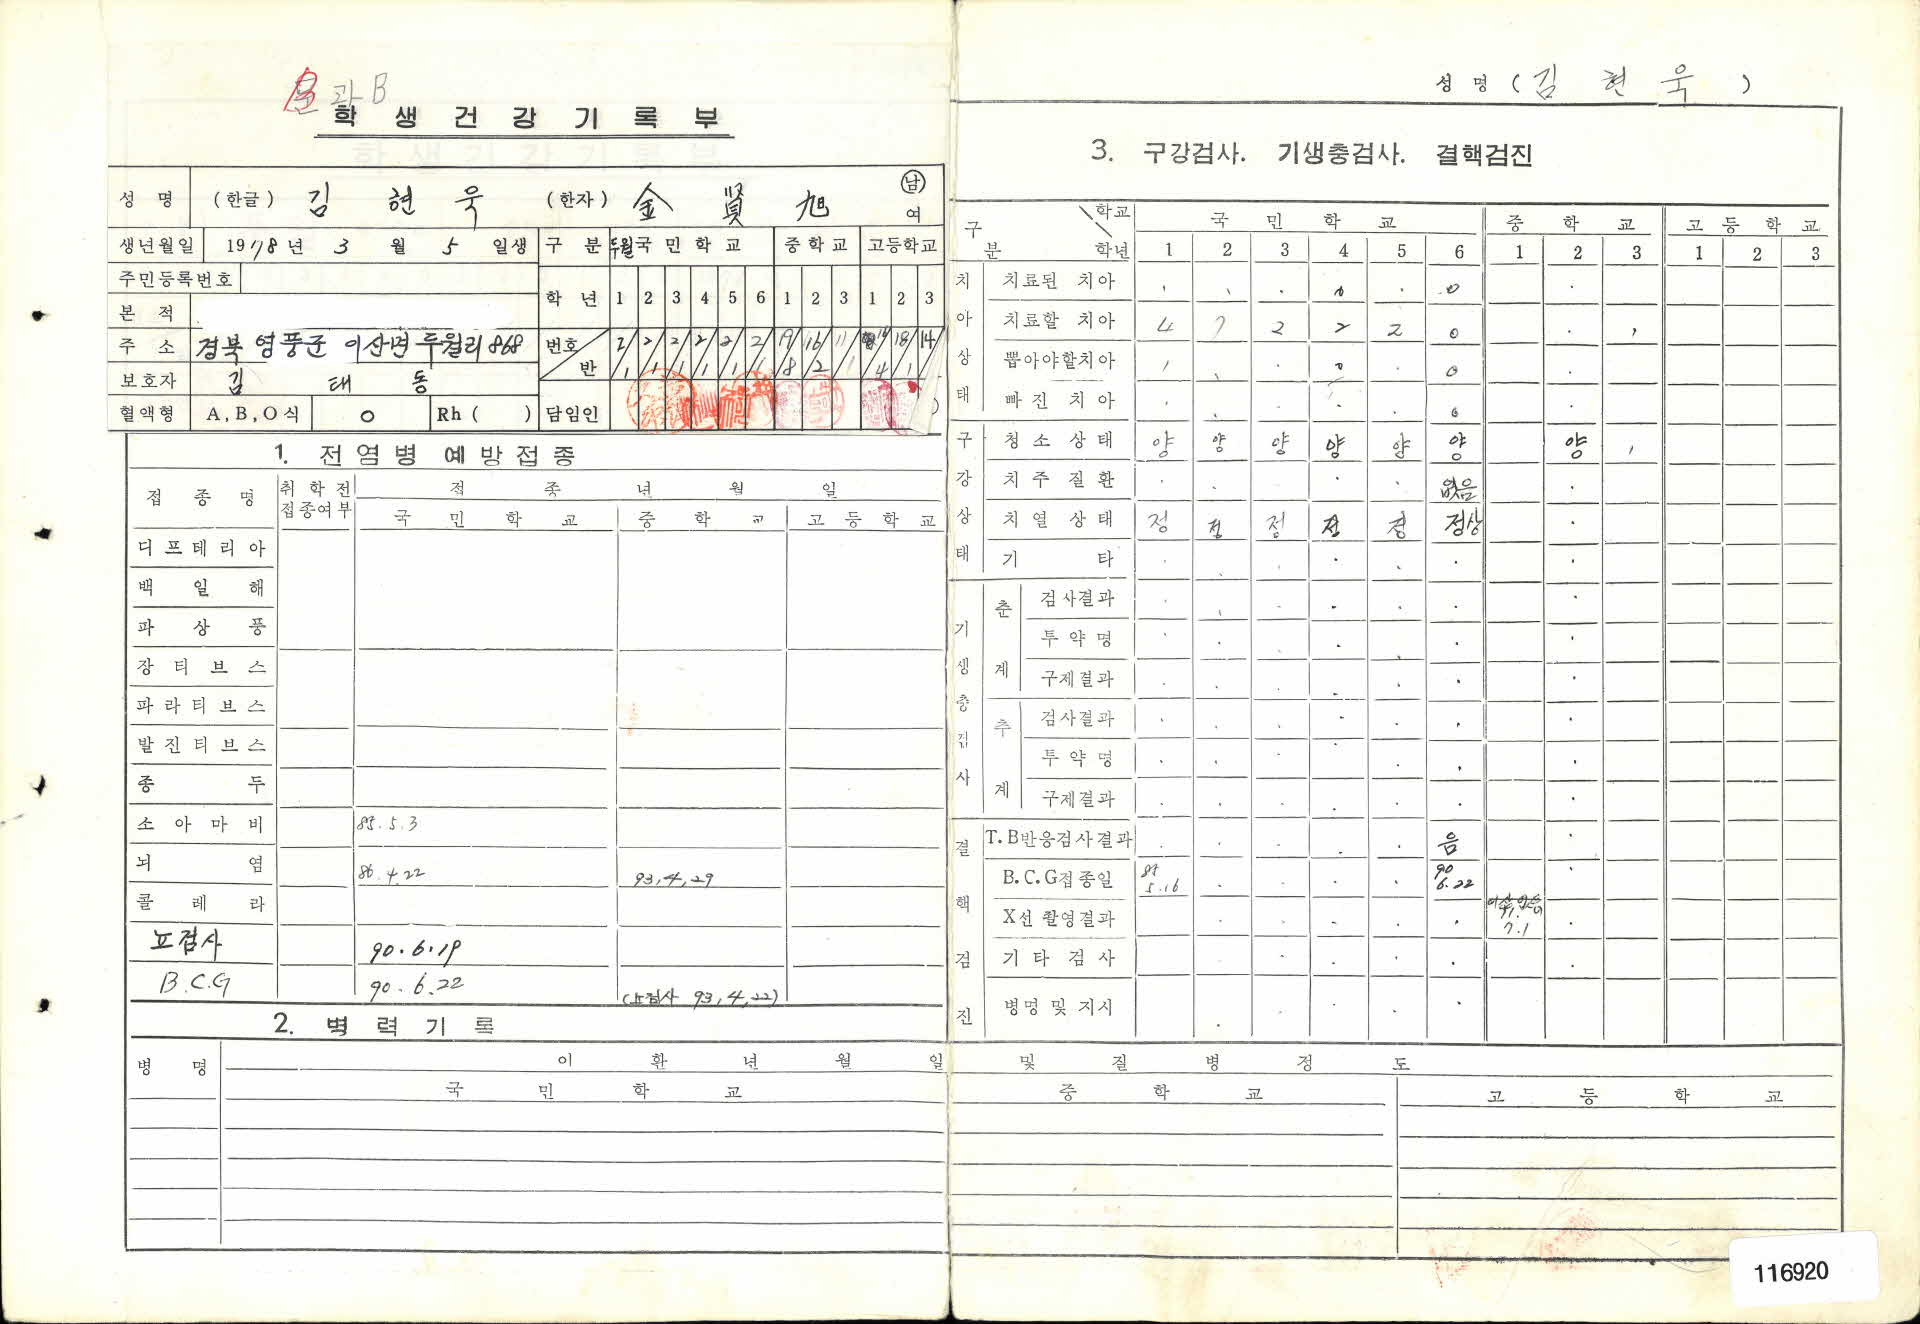 문과B
학생건강기록부
성 명 (한글) 김 현 욱 (한자) 金 賢 旭 남 여
생년월일 1978년 3 월 5 일생 구 분 두월국민학교 중학교 고등학교
주민등록번호 학 년 1 2 3 4 5 6 1 2 3 1 2 3
본 적
주 소 경북 영풍군 이산면 두월리 868 번호 2 2 2 2 2 2 19 16 11 18 14
보호자 김 태 동 반 1 1 1 1 1 1 8 2 1 4 1
혈액형 A, B, O식 O Rh ( ) 담임인
1. 전염병 예방접종
접 종 명 취학전 접종여부 접 종 년 월 일
국 민 학 교 중 학 교 고 등 학 교
디프테리아
백 일 해
파 상 풍
장 티 브 스
파라티브스
발진티브스
종 두
소 아 마 비 85. 5. 3
뇌 염 86. 4. 22 93, 4, 29
콜 레 라
뇨검사 90. 6. 19
B.C.G 90. 6. 22 (뇨검사 93, 4, 22)
2. 병력기록
성 명 ( 김 현 욱 )
3. 구강검사. 기생충검사. 결핵검진
구 분 학교 국 민 학 교 중 학 교 고 등 학 교
학년 1 2 3 4 5 6 1 2 3 1 2 3
치아상태
치료된 치아 0 0
치료할 치아 4 7 2 2 2 0
뽑아야할치아 0 0
빠 진 치 아 0
구강상태
청 소 상 태 양 양 양 양 양 양 양
치 주 질 환 없음
치 열 상 태 정 정 정 정 정 정상
기 타
기생충검사
춘계 검사결과
투 약 명
구제결과
추계 검사결과
투 약 명
구제결과
결핵검진
T.B반응검사결과 음
B.C.G접종일 85 5.16 90 6.22
X선 촬영결과 이상없음 91. 7.1
기 타 검 사
병명 및 지시
병 명 이 환 년 월 일 및 질 병 정 도
국 민 학 교 중 학 교 고 등 학 교
116920